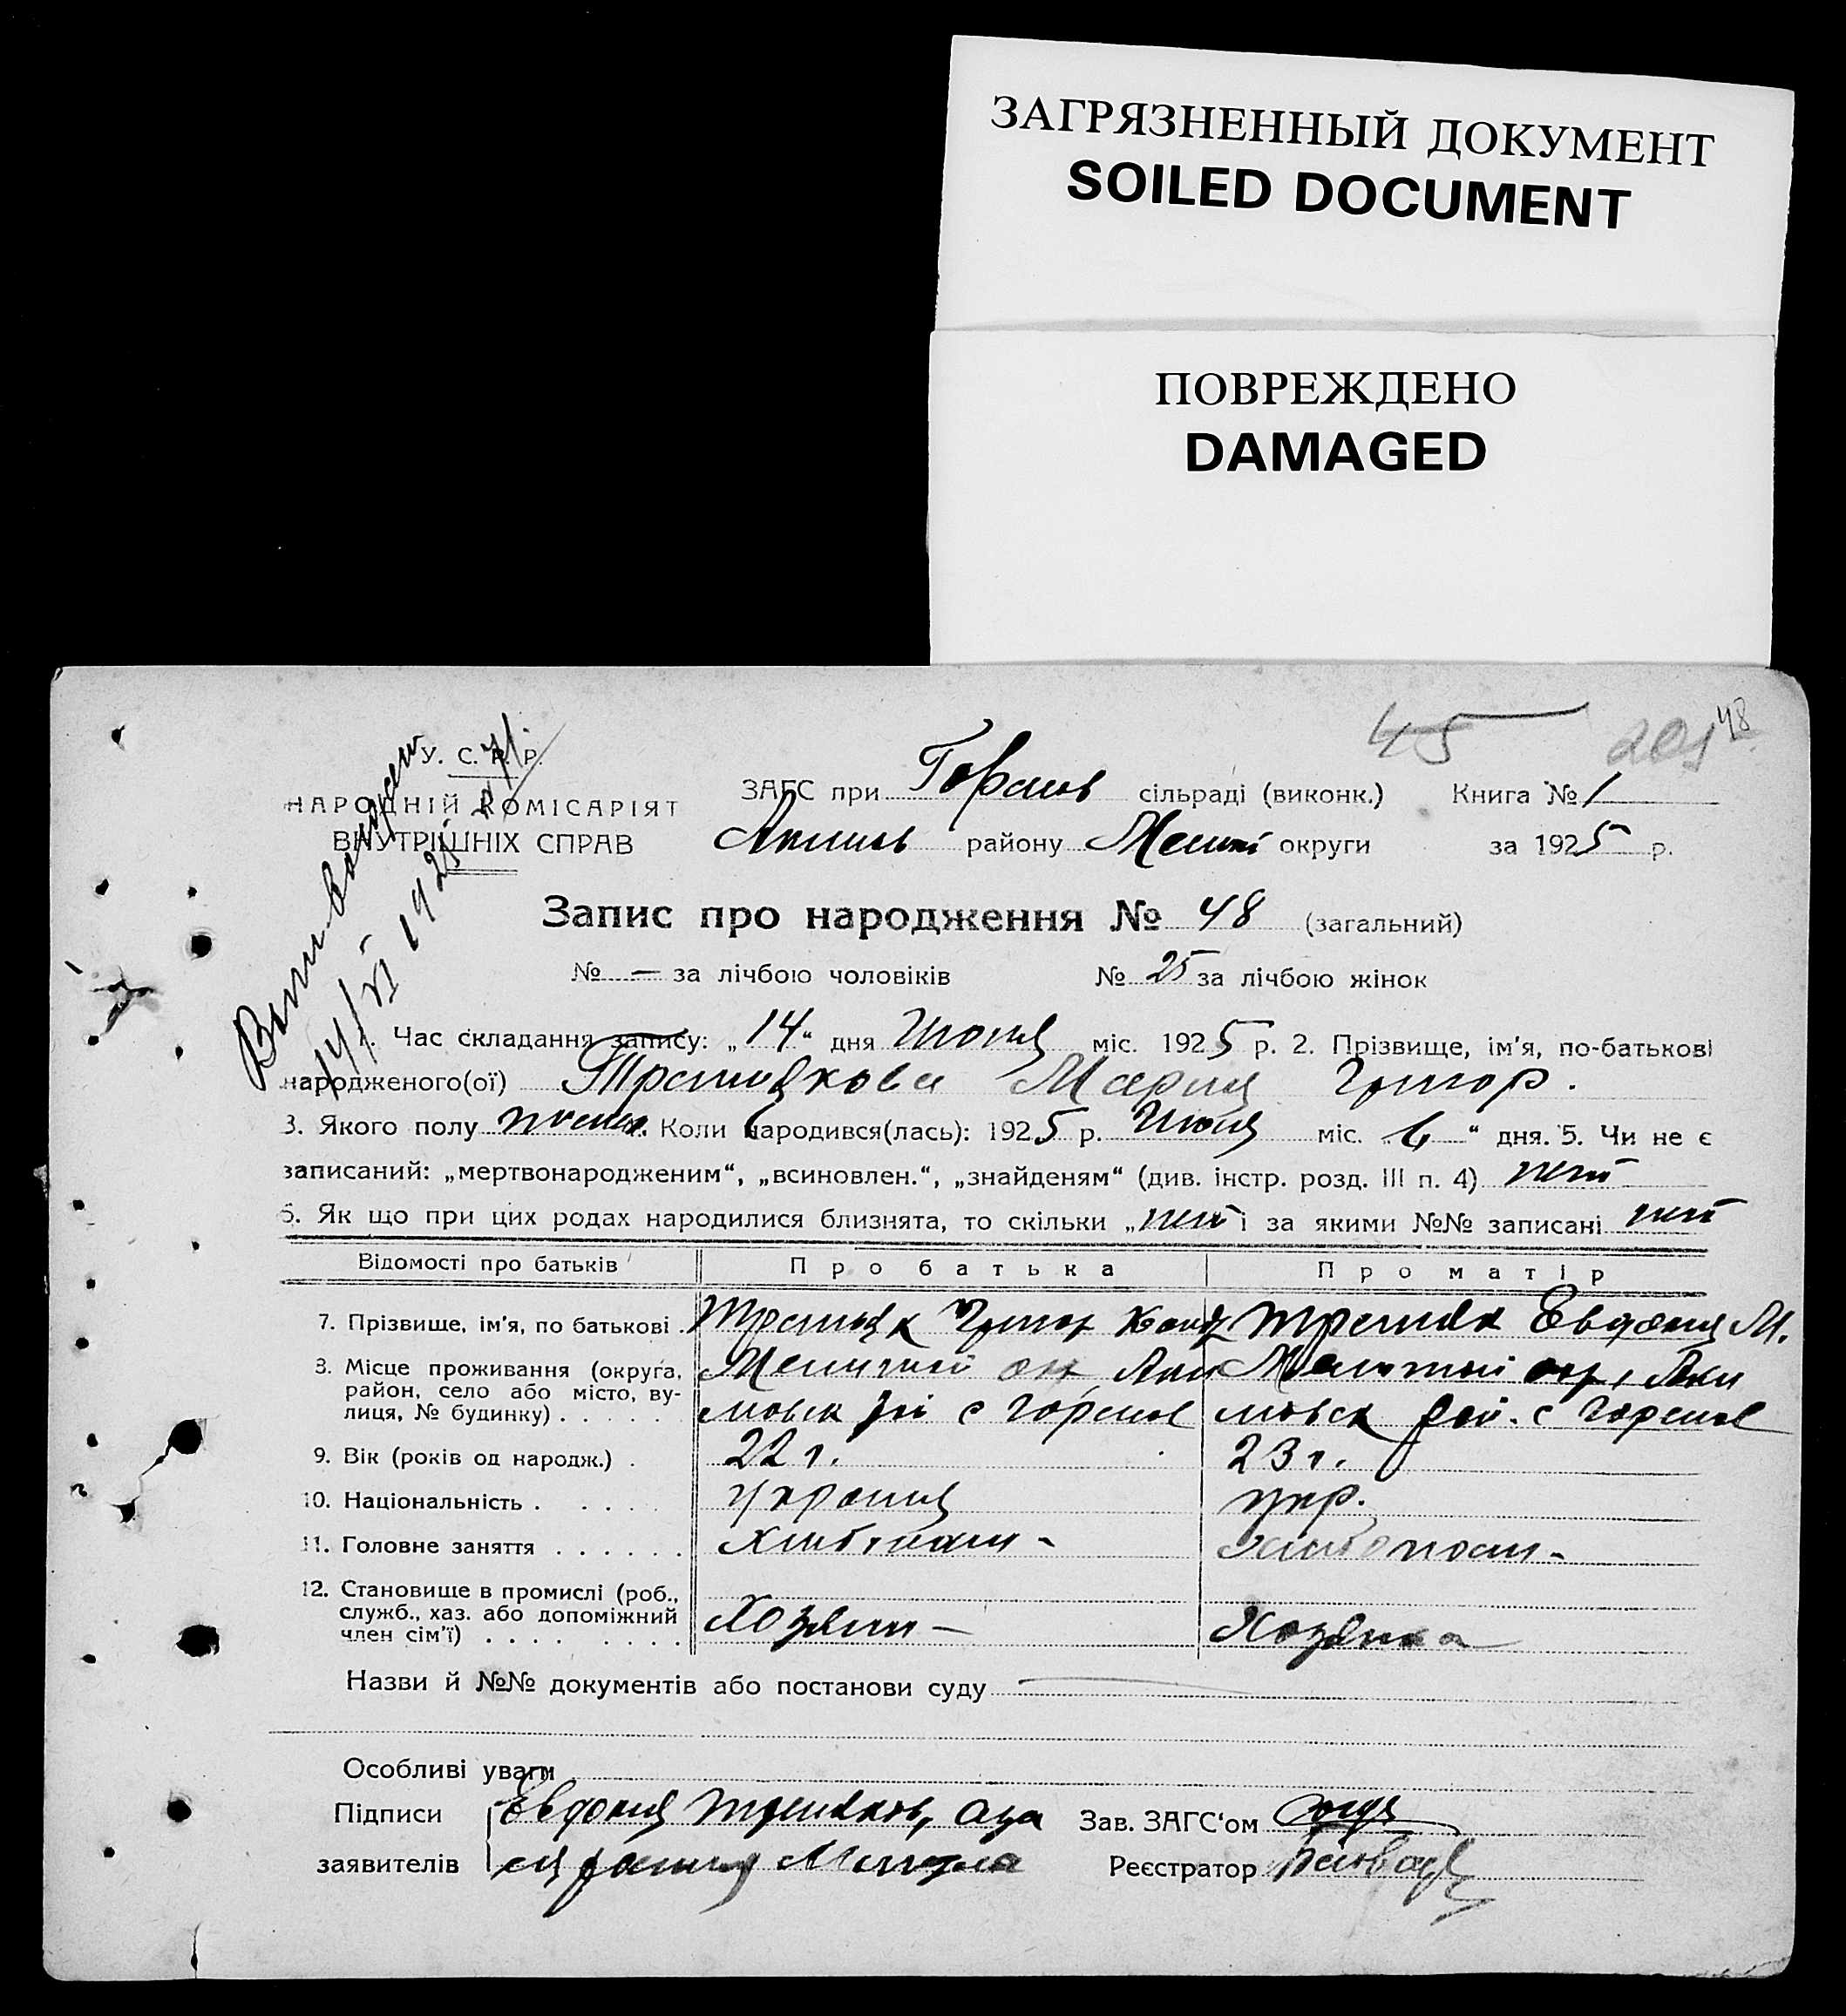 ЗАГРЯЗНЕННЫЙ ДОКУМЕНТ
SOILED DOCUMENT
ПОВРЕЖДЕНО
DAMAGED
45 201 48
У. С. Р. Р.
НАРОДНІЙ КОМІСАРІЯТ
ВНУТРІШНІХ СПРАВ
14/VI 1925
ЗАГС при Горелов сільраді (виконк.) Книга № 1
Акимов району Мелит округи за 1925 р.
Запис про народження № 48 (загальний)
№ — за лічбою чоловіків № 25 за лічбою жінок
1. Час складання запису: „14“ дня Июня міс. 1925 р. 2. Прізвище, ім'я, по-батькові
народженого(ої) Мария Григор.
3. Якого полу женск. Коли народився(лась): 1925 р. Июня міс. „6“ дня. 5. Чи не є
записаний: „мертвонародженим“, „всиновлен.“, „знайденям“ (див. інстр. розд. III п. 4) нет
6. Як що при цих родах народилися близнята, то скільки „нет і за якими №№ записані нет
Відомості про батьків Про батька Про матір
7. Прізвище, ім'я, по батькові . Григор Евдокия М.
8. Місце проживання (округа, район, село або місто, вулиця, № будинку) . . . . .
Мелиткий ок Аки Мелиткий окр, Аки
мовск рай с Горелов мовск рай. с Горелов
9. Вік (років од народж.) . 22 г. 23 г.
10. Національність . . . . . укр.
11. Головне заняття . . . . . .
12. Становище в промислі (роб., служб., хаз. або допоміжний член сім'ї) . . . . . . . .
Хозяин — Хозяика
Назви й №№ документів або постанови суду
Особливі уваги
Підписи Евдокия Зав. ЗАГС'ом
заявителів Реєстратор